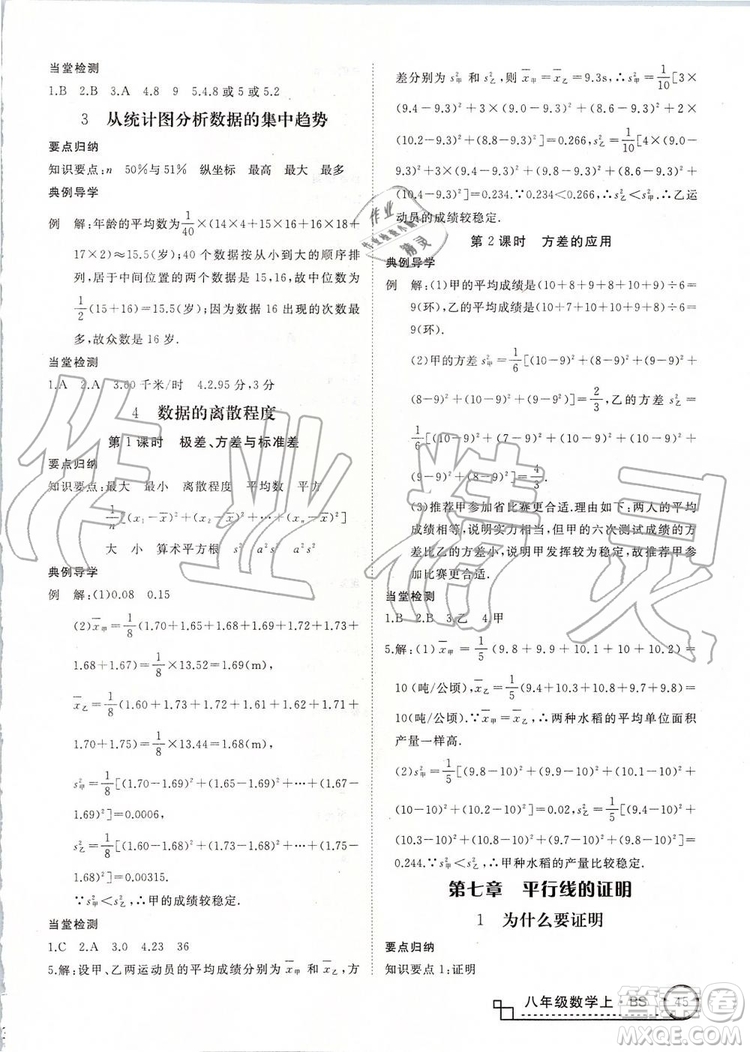 当堂检测
1.B 2.B 3.A 4.8 9 5.4.8或5或5.2
3 从统计图分析数据的集中趋势
要点归纳
知识要点:n 50%与51% 纵坐标 最高 最大 最多
典例导学
例 解:年龄的平均数为1/40×(14×4+15×16+16×18+
17×2)≈15.5(岁);40个数据按从小到大的顺序排
列,居于中间位置的两个数据是15,16,故中位数是
1/2(15+16)=15.5(岁);因为数据16出现的次数最
多,故众数为16岁.
当堂检测
1.A 2.A 3.60千米/时 4.2.95分,3分
4 数据的离散程度
第1课时 极差、方差与标准差
要点归纳
知识要点:最大 最小 离散程度 平均数 平方
1/n[(x₁-x̄)²+(x₂-x̄)²+…+(xₙ-x̄)²]
大 小 算术平方根 s² a²s² a²s²
典例导学
例 解:(1)0.08 0.15
(2)x̄甲=1/8(1.70+1.65+1.68+1.69+1.72+1.73+
1.68+1.67)=1/8×13.52=1.69(m),
x̄乙=1/8(1.60+1.73+1.72+1.61+1.62+1.71+
1.70+1.75)=1/8×13.44=1.68(m);
s²甲=1/8[(1.70-1.69)²+(1.65-1.69)²+…+(1.67-
1.69)²]=0.0006,
s²乙=1/8[(1.60-1.68)²+(1.73-1.68)²+…+(1.75-
1.68)²]=0.00315.
∵s²甲<s²乙,∴甲的成绩较稳定.
当堂检测
1.C 2.A 3.0 4.23 36
5.解:设甲、乙两运动员的平均成绩分别为x̄甲和x̄乙,方
差分别为s²甲和s²乙,则x̄甲=9.3s,∴s²甲=1/5[3×
(9.4-9.3)²+(8.6-9.3)²+
(10.2-9.3)²]=0.266,s²乙=1/5[2×
(10.4-9.3)²]=0.234.∵0.234<0.266,∴乙运
动员的成绩较稳定.
第2课时 方差的应用
典例导学
例 解:(1)甲的平均成绩是(10+8+9+8+10+9)÷6=
9(环),乙的平均成绩是(10+7+10+10+9+8)÷6=
9(环).
(2)甲的方差s²甲=1/6[(10-9)²+(8-9)²+(9-9)²
+(8-9)²+(10-9)²+(9-9)²]=2/3,乙的方差s²乙=
1/6[(10-9)²+(7-9)²+(10-9)²+(10-9)²+
(9-9)²+(8-9)²]=4/3.
(3)推荐甲参加省比赛更合适.理由如下:两人的平均
成绩相等,说明实力相当;但甲的六次测试成绩的方
差比乙的方差小,说明甲发挥较为稳定,故推荐甲参
加比赛更合适.
当堂检测
1.B 2.B 3.乙 4.甲
5.解:(1)x̄甲=1/5(9.8+9.9+10.1+10+10.2)=
10(吨/公顷),x̄乙=1/5(9.4+10.3+10.8+9.7+9.8)=
10(吨/公顷).∵x̄甲=x̄乙,∴两种水稻的平均单位面积
产量一样高.
(2)s²甲=1/5[(9.8-10)²+(9.9-10)²+(10.1-10)²
+(10-10)²+(10.2-10)²]=0.02,s²乙=1/5[(9.4-10)²+
(10.3-10)²+(10.8-10)²+(9.7-10)²+(9.8-10)²]=
0.244.∵s²甲<s²乙,∴甲种水稻的产量比较稳定.
第七章 平行线的证明
1 为什么要证明
要点归纳
知识要点1:证明
八年级数学上·BS
45
作业精灵
MXQE.COM